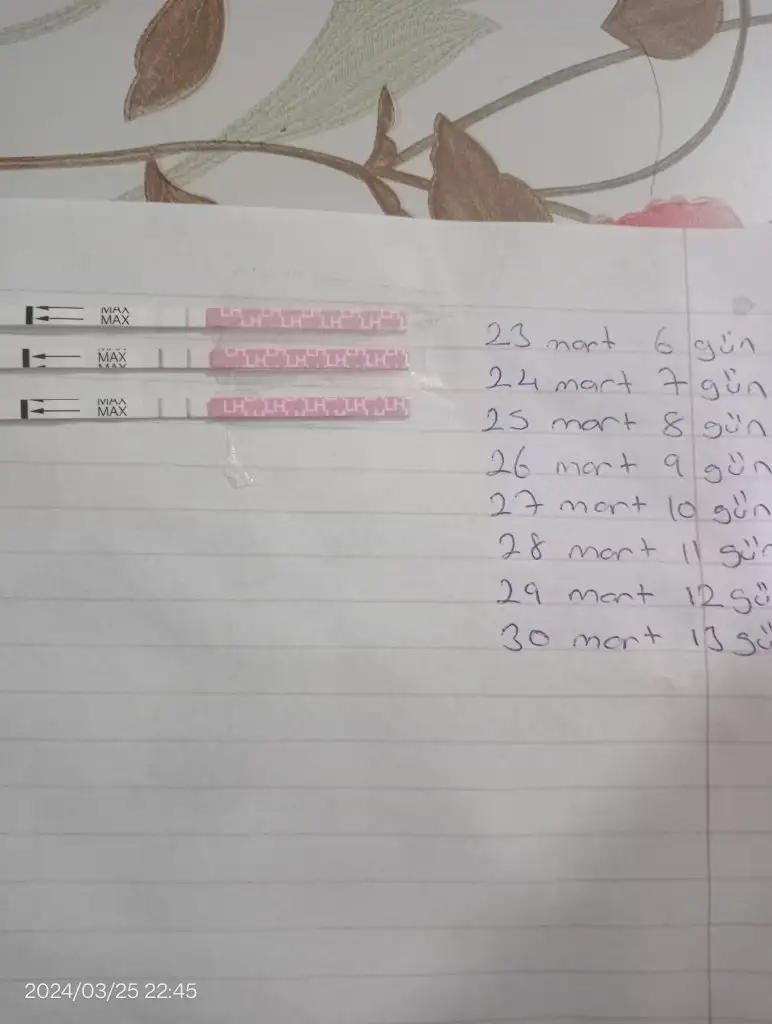 MAX
MAX
LH LH LH LH LH
23 mart 6 gün
MAX
MAX
LH LH LH LH LH
24 mart 7 gün
MAX
MAX
LH LH LH LH LH
25 mart 8 gün
26 mart 9 gün
27 mart 10 gün
28 mart 11 gün
29 mart 12 gü
30 mart 13 gü
2024/03/25 22:45